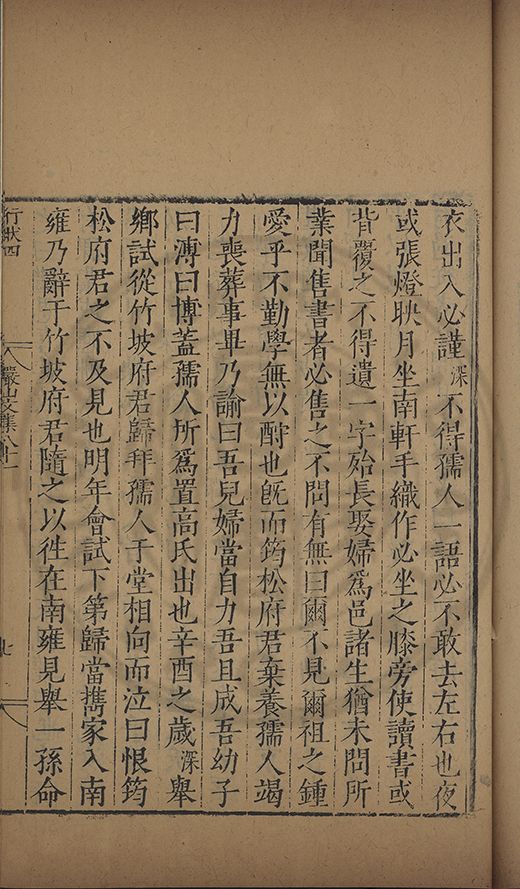 衣出入必謹深不得孺人一語必不敢去左右也夜
或張燈映月坐南軒手織作必坐之膝旁使讀書或
背覆之不得遺一字殆長娶婦爲邑諸生猶未問所
業聞售書者必售之不問有無曰爾不見爾祖之鍾
愛乎不勤學無以酧也旣而筠松府君棄養孺人竭
力喪葬事畢乃諭曰吾兒婦當自力吾且成吾幼子
曰溥曰博蓋孺人所爲置高氏出也辛酉之歲深舉
鄉試從竹坡府君歸拜孺人于堂相向而泣曰恨筠
松府君之不及見也明年會試下第歸當攜家入南
雍乃辭于竹坡府君隨之以徃在南雍見舉一孫命
行狀四
儼山文集八十一
七